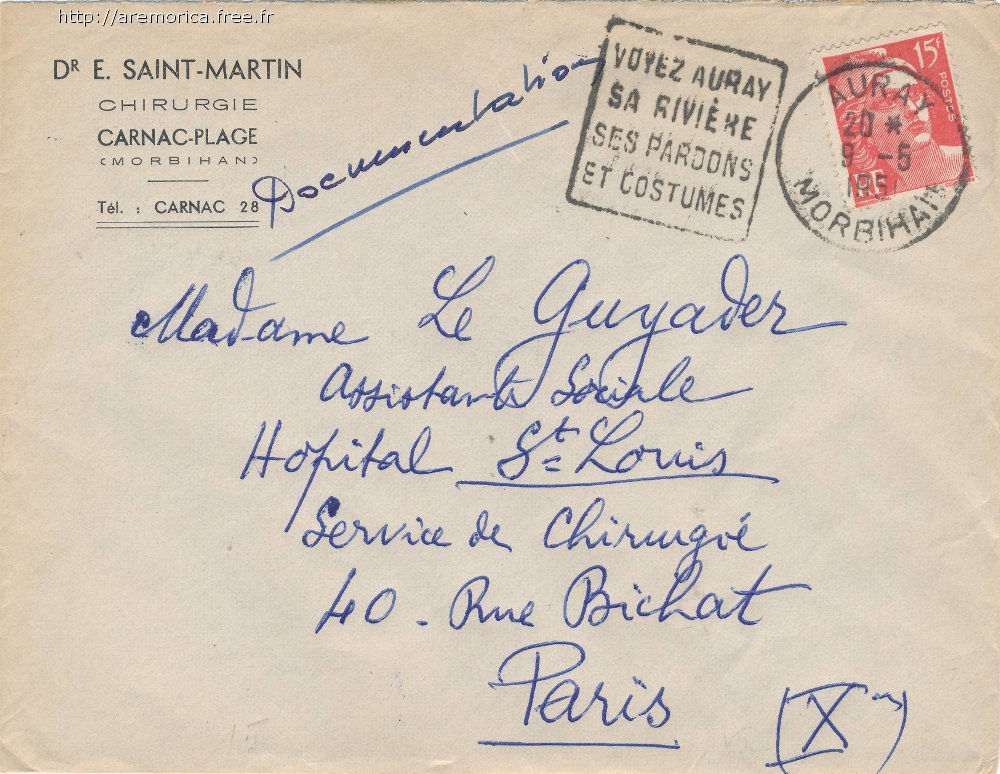 http://aremorica.free.fr
DR E. SAINT-MARTIN
CHIRURGIE
CARNAC-PLAGE
(MORBIHAN)
Tél. : CARNAC 28
Documentation
VOYEZ AURAY
SA RIVIÈRE
SES PARDONS
ET COSTUMES
15F
POSTES
RF
AURAY
20 *
9 -5
MORBIHAN
Madame Le Guyader
Assistante Sociale
Hôpital St Louis
Service de Chirurgie
40 - Rue Bichat
Paris
(Xme)